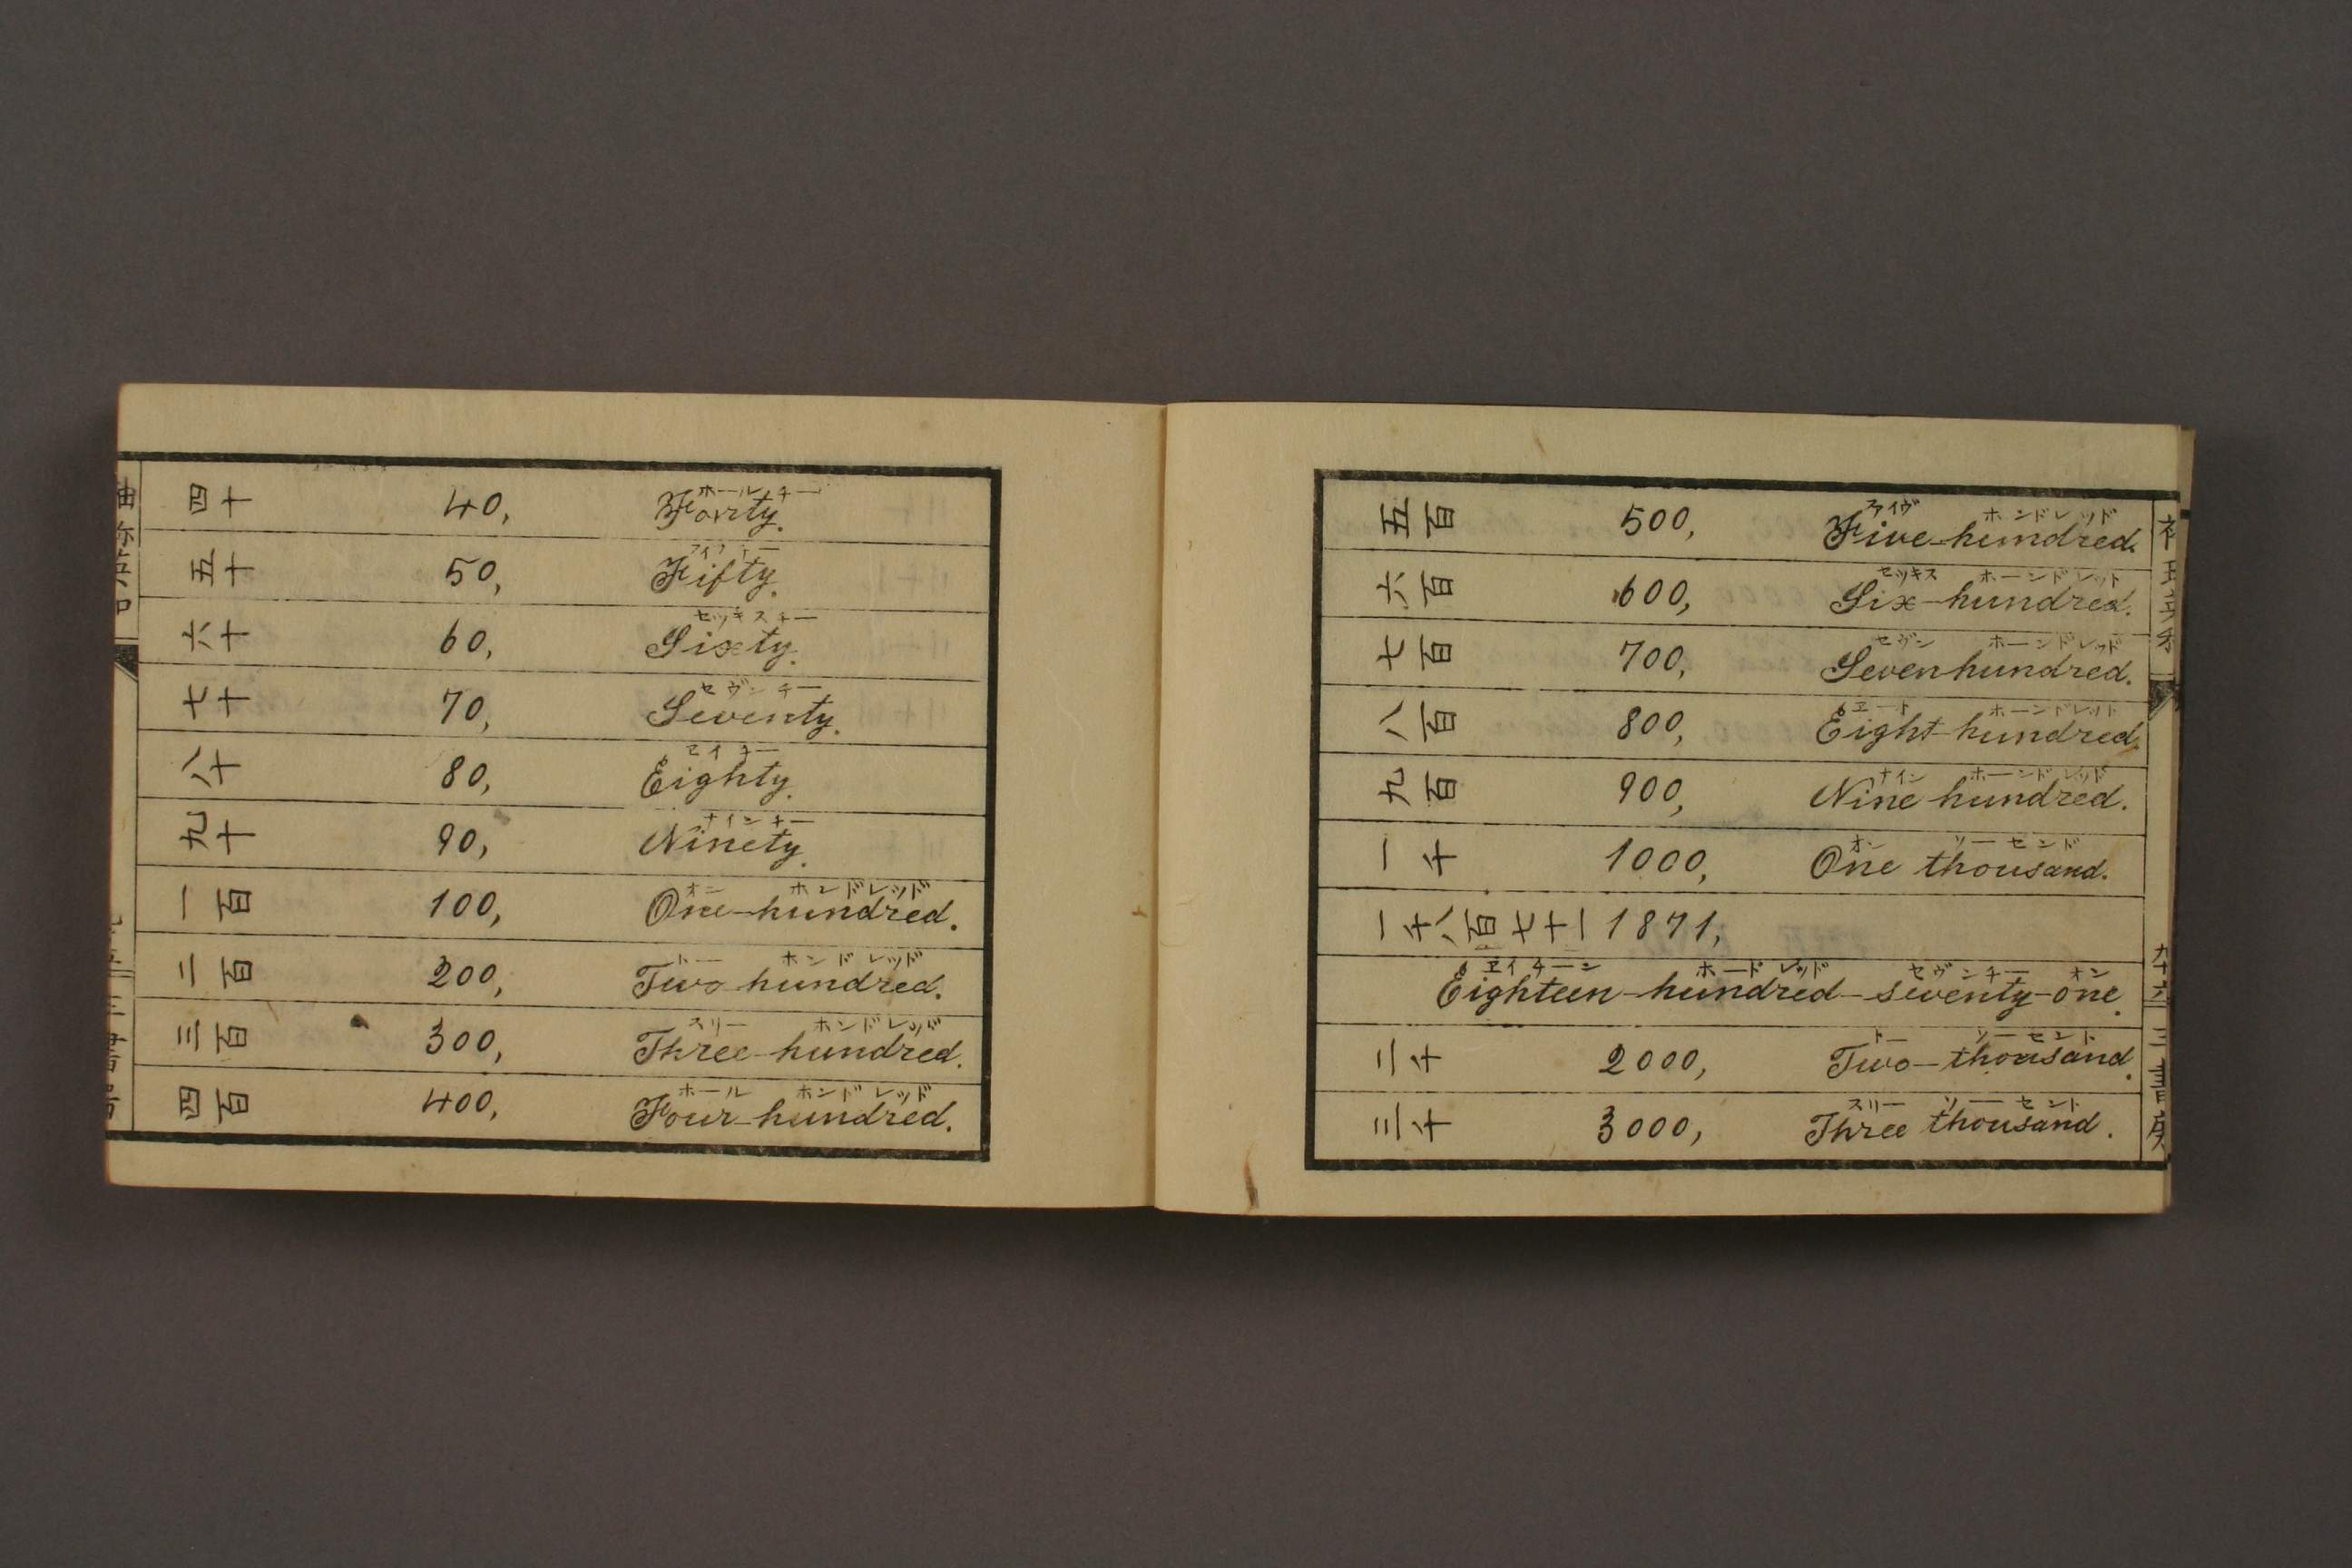 ホールチー
四十 40, Forty.
五十 50, Fifty.
セッキスチー
六十 60, Sixty.
セヴンチー
七十 70, Seventy.
ヱイチー
八十 80, Eighty.
ナインチー
九十 90, Ninety.
オン ホンドレッド
一百 100, One-hundred.
トー ホンドレッド
二百 200, Two-hundred.
スリー ホンドレッド
三百 300, Three-hundred.
ホール ホンドレッド
四百 400, Four-hundred.
ファイヴ ホンドレッド
五百 500, Five-hundred.
セッキス ホーンドレット
六百 600, Six-hundred.
セヴン ホーンドレッド
七百 700, Seven hundred.
ヱート ホーンドレット
八百 800, Eight-hundred.
ナイン ホーンドレッド
九百 900, Nine hundred.
オン ソーセンド
一千 1000, One thousand.
一千八百七十一 1871,
ヱイチーン ホードレッド セヴンチー オン
Eighteen-hundred-seventy-one.
トー ソーセント
二千 2000, Two-thousand.
スリー ソーセント
三千 3000, Three thousand.
九十六